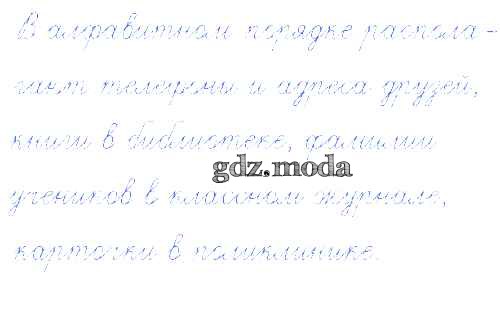 В алфавитном порядке распола-
гают телефоны и адреса друзей,
книги в библиотеке, фамилии
gdz.moda
учеников в классном журнале,
карточки в поликлинике.